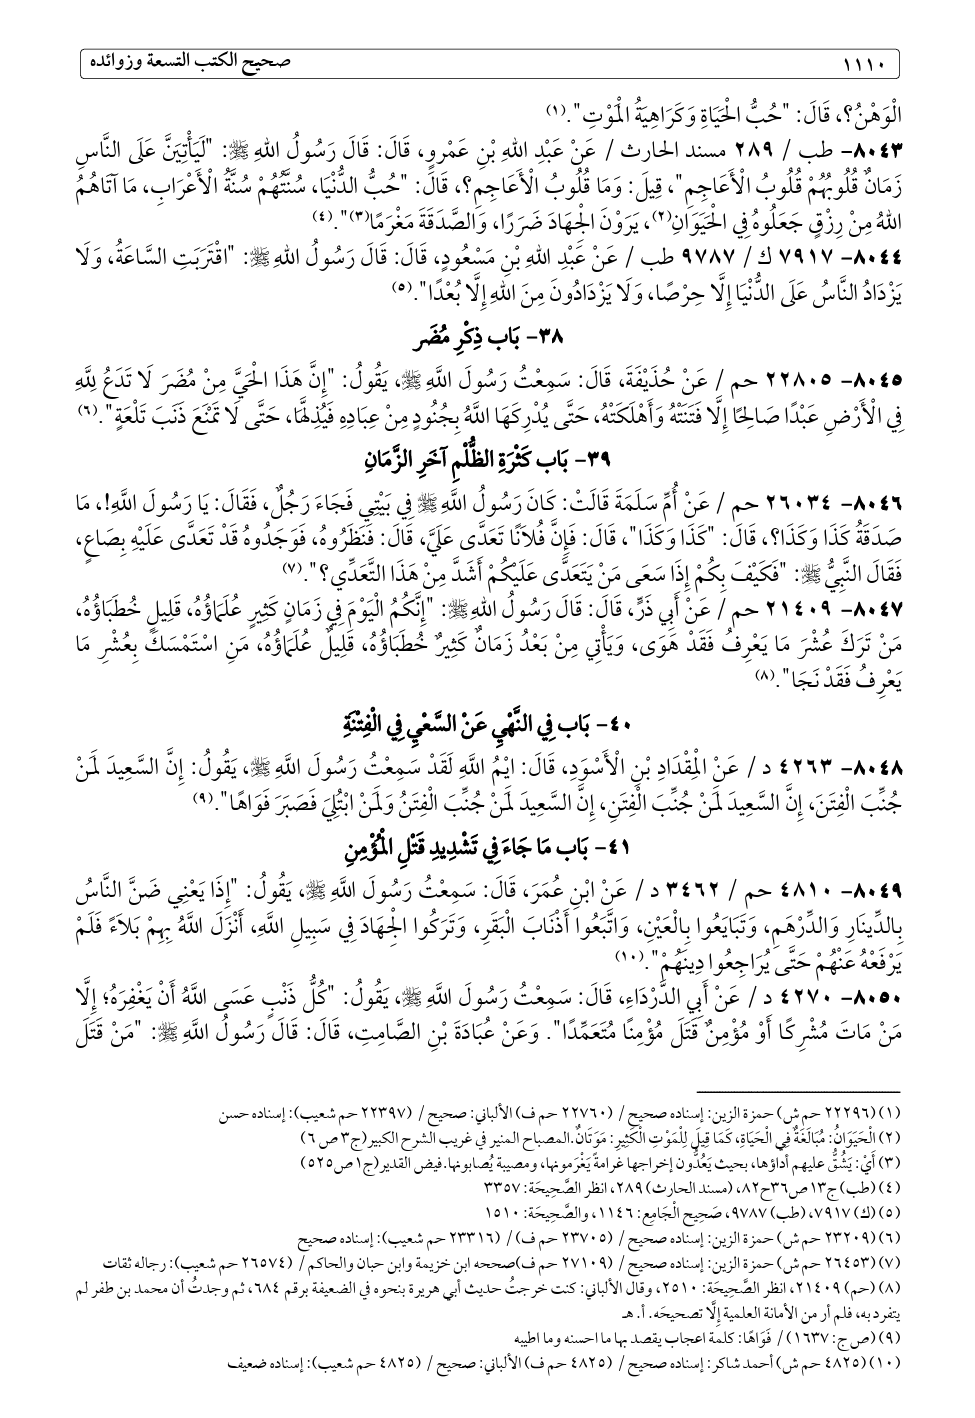 ١١١٠ صحيح الكتب التسعة وزوائده
الْوَهْنُ؟، قَالَ: "حُبُّ الْحَيَاةِ وَكَرَاهِيَةُ الْمَوْتِ".(١)
٨٠٤٣- طب / ٢٨٩ مسند الحارث / عَنْ عَبْدِ اللهِ بْنِ عَمْرٍو، قَالَ: قَالَ رَسُولُ اللهِ ﷺ: "لَيَأْتِيَنَّ عَلَى النَّاسِ
زَمَانٌ قُلُوبُهُمْ قُلُوبُ الْأَعَاجِمِ"، قِيلَ: وَمَا قُلُوبُ الْأَعَاجِمِ؟، قَالَ: "حُبُّ الدُّنْيَا، سُنَّتُهُمْ سُنَّةُ الْأَعْرَابِ، مَا آتَاهُمُ
اللهُ مِنْ رِزْقٍ جَعَلُوهُ فِي الْحَيَوَانِ(٢)، يَرَوْنَ الْجِهَادَ ضَرَرًا، وَالصَّدَقَةَ مَغْرَمًا(٣)".(٤)
٨٠٤٤- ٧٩١٧ ك / ٩٧٨٧ طب / عَنْ عَبْدِ اللهِ بْنِ مَسْعُودٍ، قَالَ: قَالَ رَسُولُ اللهِ ﷺ: "اقْتَرَبَتِ السَّاعَةُ، وَلَا
يَزْدَادُ النَّاسُ عَلَى الدُّنْيَا إِلَّا حِرْصًا، وَلَا يَزْدَادُونَ مِنَ اللهِ إِلَّا بُعْدًا".(٥)
٣٨- بَاب ذِكْرِ مُضَر
٨٠٤٥- ٢٢٨٠٥ حم / عَنْ حُذَيْفَةَ، قَالَ: سَمِعْتُ رَسُولَ اللَّهِ ﷺ، يَقُولُ: "إِنَّ هَذَا الْحَيَّ مِنْ مُضَرَ لَا تَدَعُ لِلَّهِ
فِي الْأَرْضِ عَبْدًا صَالِحًا إِلَّا فَتَنَتْهُ وَأَهْلَكَتْهُ، حَتَّى يُدْرِكَهَا اللَّهُ بِجُنُودٍ مِنْ عِبَادِهِ فَيُذِلَّهَا، حَتَّى لَا تَمْنَعَ ذَنَبَ تَلْعَةٍ".(٦)
٣٩- بَاب كَثْرَةِ الظُّلْمِ آخَرِ الزَّمَانِ
٨٠٤٦- ٢٦٠٣٤ حم / عَنْ أُمِّ سَلَمَةَ قَالَتْ: كَانَ رَسُولُ اللَّهِ ﷺ فِي بَيْتِي فَجَاءَ رَجُلٌ، فَقَالَ: يَا رَسُولَ اللَّهِ!، مَا
صَدَقَةُ كَذَا وَكَذَا؟، قَالَ: "كَذَا وَكَذَا"، قَالَ: فَإِنَّ فُلَانًا تَعَدَّى عَلَيَّ، قَالَ: فَنَظَرُوهُ، فَوَجَدُوهُ قَدْ تَعَدَّى عَلَيْهِ بِصَاعٍ،
فَقَالَ النَّبِيُّ ﷺ: "فَكَيْفَ بِكُمْ إِذَا سَعَى مَنْ يَتَعَدَّى عَلَيْكُمْ أَشَدَّ مِنْ هَذَا التَّعَدِّي؟".(٧)
٨٠٤٧- ٢١٤٠٩ حم / عَنْ أَبِي ذَرٍّ، قَالَ: قَالَ رَسُولُ اللهِ ﷺ: "إِنَّكُمُ الْيَوْمَ فِي زَمَانٍ كَثِيرٍ عُلَمَاؤُهُ، قَلِيلٍ خُطَبَاؤُهُ،
مَنْ تَرَكَ عُشْرَ مَا يَعْرِفُ فَقَدْ هَوَى، وَيَأْتِي مِنْ بَعْدُ زَمَانٌ كَثِيرٌ خُطَبَاؤُهُ، قَلِيلٌ عُلَمَاؤُهُ، مَنِ اسْتَمْسَكَ بِعُشْرِ مَا
يَعْرِفُ فَقَدْ نَجَا".(٨)
٤٠- بَاب فِي النَّهْيِ عَنْ السَّعْيِ فِي الْفِتْنَةِ
٨٠٤٨- ٤٢٦٣ د / عَنْ الْمِقْدَادِ بْنِ الْأَسْوَدِ، قَالَ: ايْمُ اللَّهِ لَقَدْ سَمِعْتُ رَسُولَ اللَّهِ ﷺ، يَقُولُ: إِنَّ السَّعِيدَ لَمَنْ
جُنِّبَ الْفِتَنَ، إِنَّ السَّعِيدَ لَمَنْ جُنِّبَ الْفِتَنِ، إِنَّ السَّعِيدَ لَمَنْ جُنِّبَ الْفِتَنُ وَلَمَنْ ابْتُلِيَ فَصَبَرَ فَوَاهًا".(٩)
٤١- بَاب مَا جَاءَ فِي تَشْدِيدِ قَتْلِ الْمُؤْمِنِ
٨٠٤٩- ٤٨١٠ حم / ٣٤٦٢ د / عَنْ ابْنِ عُمَرَ، قَالَ: سَمِعْتُ رَسُولَ اللَّهِ ﷺ، يَقُولُ: "إِذَا يَعْنِي ضَنَّ النَّاسُ
بِالدِّينَارِ وَالدِّرْهَمِ، وَتَبَايَعُوا بِالْعَيْنِ، وَاتَّبَعُوا أَذْنَابَ الْبَقَرِ، وَتَرَكُوا الْجِهَادَ فِي سَبِيلِ اللَّهِ، أَنْزَلَ اللَّهُ بِهِمْ بَلَاءً فَلَمْ
يَرْفَعْهُ عَنْهُمْ حَتَّى يُرَاجِعُوا دِينَهُمْ".(١٠)
٨٠٥٠- ٤٢٧٠ د / عَنْ أَبِي الدَّرْدَاءِ، قَالَ: سَمِعْتُ رَسُولَ اللَّهِ ﷺ، يَقُولُ: "كُلُّ ذَنْبٍ عَسَى اللَّهُ أَنْ يَغْفِرَهُ؛ إِلَّا
مَنْ مَاتَ مُشْرِكًا أَوْ مُؤْمِنٌ قَتَلَ مُؤْمِنًا مُتَعَمِّدًا". وَعَنْ عُبَادَةَ بْنِ الصَّامِتِ، قَالَ: قَالَ رَسُولُ اللَّهِ ﷺ: "مَنْ قَتَلَ
(١) (٢٢٢٩٦ حم ش) حمزة الزين: إسناده صحيح / (٢٢٧٦٠ حم ف) الألباني: صحيح / (٢٢٣٩٧ حم شعيب): إسناده حسن
(٢) الْحَيَوَانُ: مُبَالَغَةٌ فِي الْحَيَاةِ، كَمَا قِيلَ لِلْمَوْتِ الْكَثِيرِ: مَوَتَانٌ.المصباح المنير في غريب الشرح الكبير(ج٣ ص٦)
(٣) أَيْ: يَشُقُّ عليهم أداؤها، بحيث يَعُدُّون إخراجها غرامةً يَغْرَمونها، ومصيبة يُصابونها.فيض القدير(ج١ص٥٢٥)
(٤) (طب) ج١٣ص٣٦ح٨٢، (مسند الحارث) ٢٨٩، انظر الصَّحِيحَة: ٣٣٥٧
(٥) (ك) ٧٩١٧، (طب) ٩٧٨٧، صَحِيح الْجَامِع: ١١٤٦، والصَّحِيحَة: ١٥١٠
(٦) (٢٣٢٠٩ حم ش) حمزة الزين: إسناده صحيح / (٢٣٧٠٥ حم ف) / (٢٣٣١٦ حم شعيب): إسناده صحيح
(٧) (٢٦٤٥٣ حم ش) حمزة الزين: إسناده صحيح / (٢٧١٠٩ حم ف)صححه ابن خزيمة وابن حبان والحاكم / (٢٦٥٧٤ حم شعيب): رجاله ثقات
(٨) (حم) ٢١٤٠٩، انظر الصَّحِيحَة: ٢٥١٠، وقال الألباني: كنت خرجتُ حديث أبي هريرة بنحوه في الضعيفة برقم ٦٨٤، ثم وجدتُ أن محمد بن طفر لم
يتفرد به، فلم أر من الأمانة العلمية إِلَّا تصحيحَه. أ.هـ
(٩) (ص ج: ١٦٣٧) / فَوَاهًا: كلمة اعجاب يقصد بها ما احسنه وما اطيبه
(١٠) (٤٨٢٥ حم ش) أحمد شاكر: إسناده صحيح / (٤٨٢٥ حم ف) الألباني: صحيح / (٤٨٢٥ حم شعيب): إسناده ضعيف